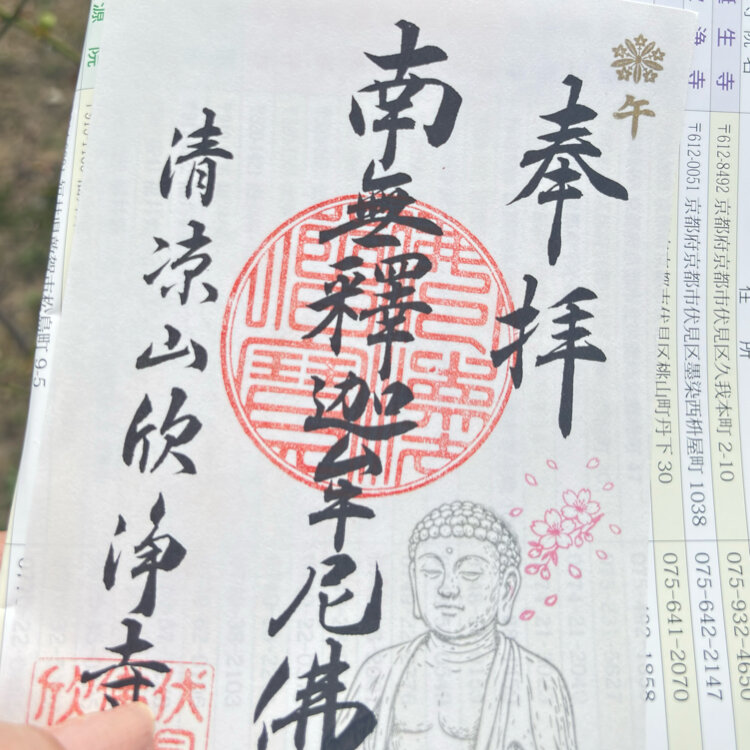 奉拝
午
南無釋迦牟尼佛
清凉山欣浄寺
佛法僧寶
伏見
欣浄
住所
生寺
海寺
〒612-8492 京都府京都市伏見区久我本町 2-10
〒612-0051 京都府京都市伏見区墨染西桝屋町 1038
伏見区桃山町丹下 30
075-932-4650
075-642-2147
075-641-2070
源 阮
松島町 9-5